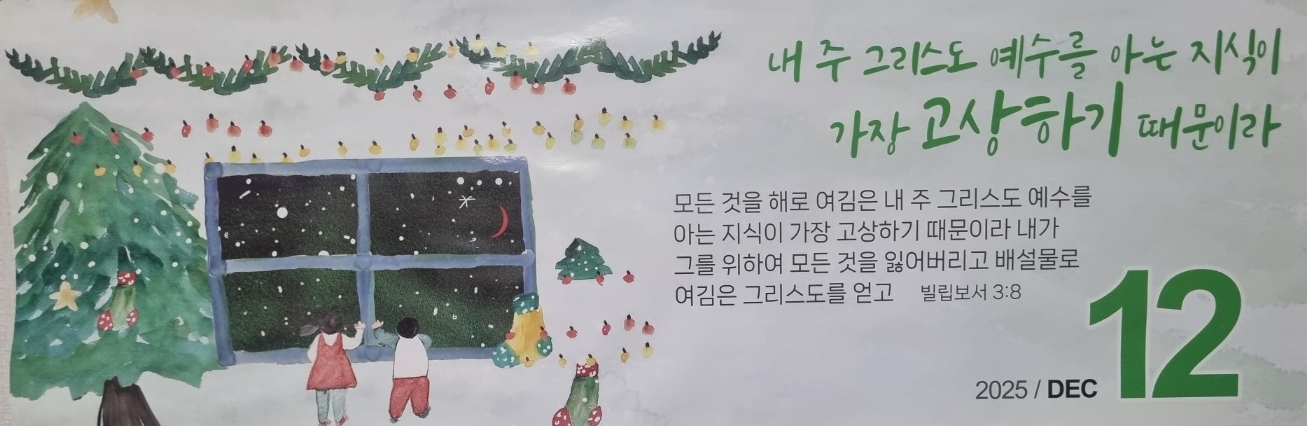 내 주 그리스도 예수를 아는 지식이
가장 고상하기 때문이라
모든 것을 해로 여김은 내 주 그리스도 예수를
아는 지식이 가장 고상하기 때문이라 내가
그를 위하여 모든 것을 잃어버리고 배설물로
여김은 그리스도를 얻고 빌립보서 3:8
2025 / DEC 12